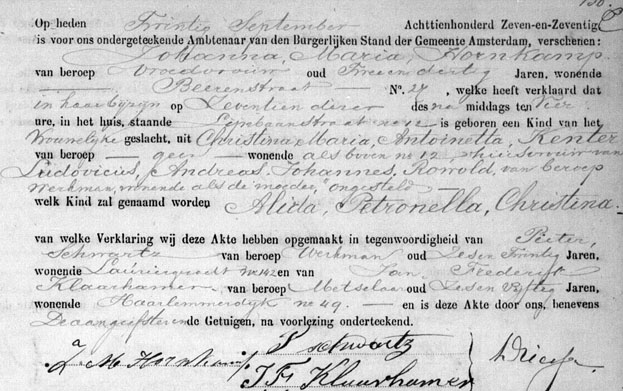 Op heden Twintig September Achttienhonderd Zeven-en-Zeventig
is voor ons ondergeteekende Ambtenaar van den Burgerlijken Stand der Gemeente Amsterdam, verschenen:
Johanna, Maria, Hornkamp
van beroep Vroedvrouw oud Jaren, wonende
Beerenstraat N°. 27, welke heeft verklaard dat
in haar bijzijn op Zeventien dezer des na middags ten Vier
ure, in het huis, staande is geboren een Kind van het
Vrouwelijke geslacht, uit Christina, Maria, Antoinetta, Kenter
van beroep geen wonende als boven n° 12 huisvrouw van
Ludovicius, Andreas, Johannes, Rowold, van beroep
Werkman, wonende als de moeder, ongesteld
welk Kind zal genaamd worden Alida, Petronella, Christina.
van welke Verklaring wij deze Akte hebben opgemaakt in tegenwoordigheid van Pieter,
Schwartz van beroep Werkman oud Zesen Twintig Jaren,
wonende Lauriergracht N° 142 en van Jan, Frederik
Klaarhamer van beroep Metselaar oud Zesen Vijftig Jaren,
wonende Haarlemmerdijk n° 49. en is deze Akte door ons, benevens
De aangeefster en de Getuigen, na voorlezing onderteekend.
J M Hornkamp
P Schwartz
J Fr Klaarhamer